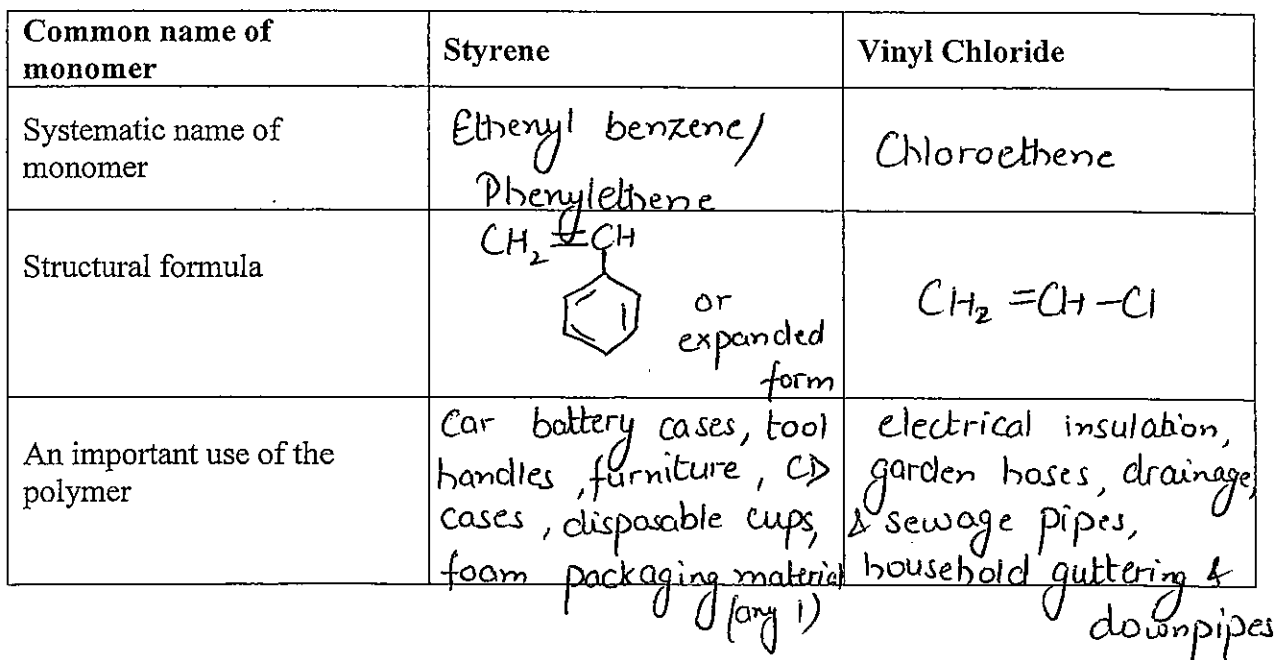 Common name of
monomer
Styrene
Vinyl Chloride
Systematic name of
monomer
Ethenyl benzene/
Phenylethene
Chloroethene
Structural formula
CH₂=CH
or
expanded
form
CH₂=CH-Cl
An important use of the
polymer
Car battery cases, tool
handles, furniture, CD
cases, disposable cups,
foam packaging material
(any 1)
electrical insulation,
garden hoses, drainage,
& sewage pipes,
household guttering &
downpipes